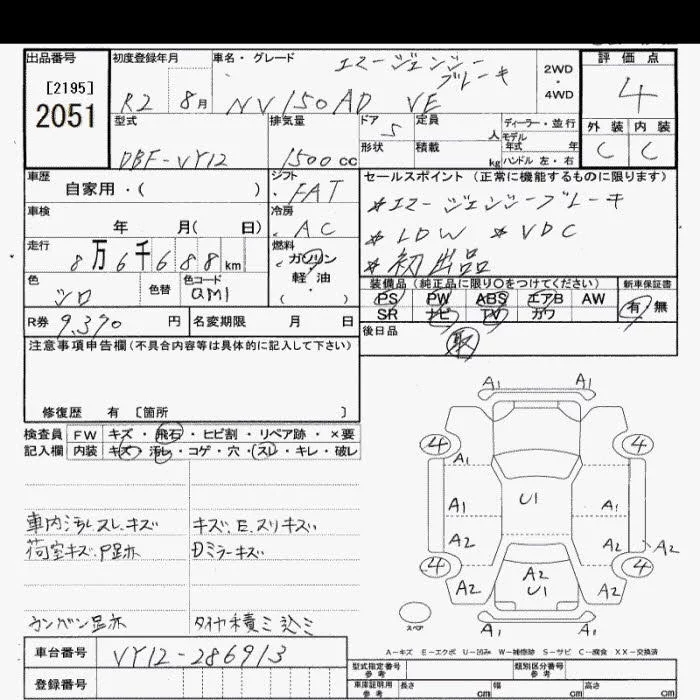 出品番号 初度登録年月 車名・グレード 評価点
[2195]
2051
R2 8月 NV150AD VE エマージェンシーブレーキ 2WD・4WD 4
型式 排気量 ドア 定員 ディーラー・並行 外装 内装
DBF-VY12 1500cc 5 人 モデル年式 年 C C
形状 積載 kg ハンドル 左・右
車歴 シフト セールスポイント(正常に機能するものに限ります)
自家用・( ) FAT
*エマージェンシーブレーキ
車検 冷房
年 月( 日) AC
*LDW *VDC
走行 燃料
8万6千688km ガソリン・軽油・( )
*初出品
色 色替 色コード
シロ QM1
装備品(純正品に限り○をつけてください) 新車保証書
PS PW ABS エアB AW 有 無
SR ナビ TV カワ
R券 9,370円 名変期限 月 日
後日品 取
注意事項申告欄(不具合内容等は具体的に記入して下さい)
修復歴 有 [箇所 ]
検査員 FW キズ・飛石・ヒビ割・リペア跡・×要
記入欄 内装 キズ・汚レ・コゲ・穴・スレ・キレ・破レ
A1 A1
4 4
A1
A1 U1 A1
A2 A2 A2
4 4
A2 A2 U1 A2
A1 A1
スペア
車内汚レ.スレ.キズ キズ.E.スリキズ
荷室キズ.P跡 Dミラーキズ
カンバン跡 タイヤ積ミ込ミ
A-キズ E-エクボ U-凹み W-補修跡 S-サビ C-腐食 XX-交換済
車台番号 VY12-286913
型式指定番号 参考 類別区分番号 参考
登録番号
車庫証明用 参考 長さ cm 幅 cm 高さ cm